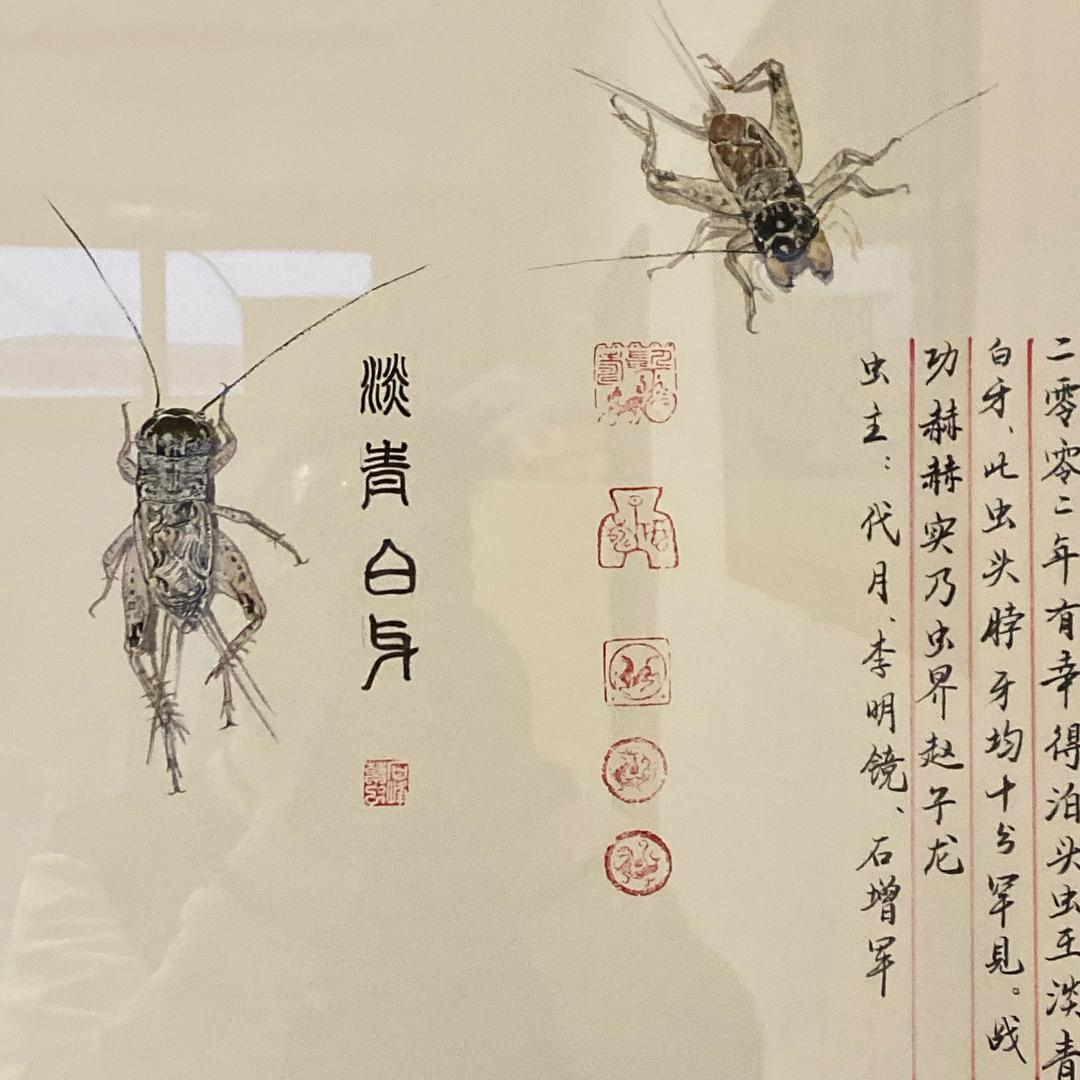 二零零二年有幸得泊头虫王淡青
白牙、此虫头脖牙均十分罕见。战
功赫赫实乃虫界赵子龙
虫主：代月、李明镜、石增军
淡青白牙